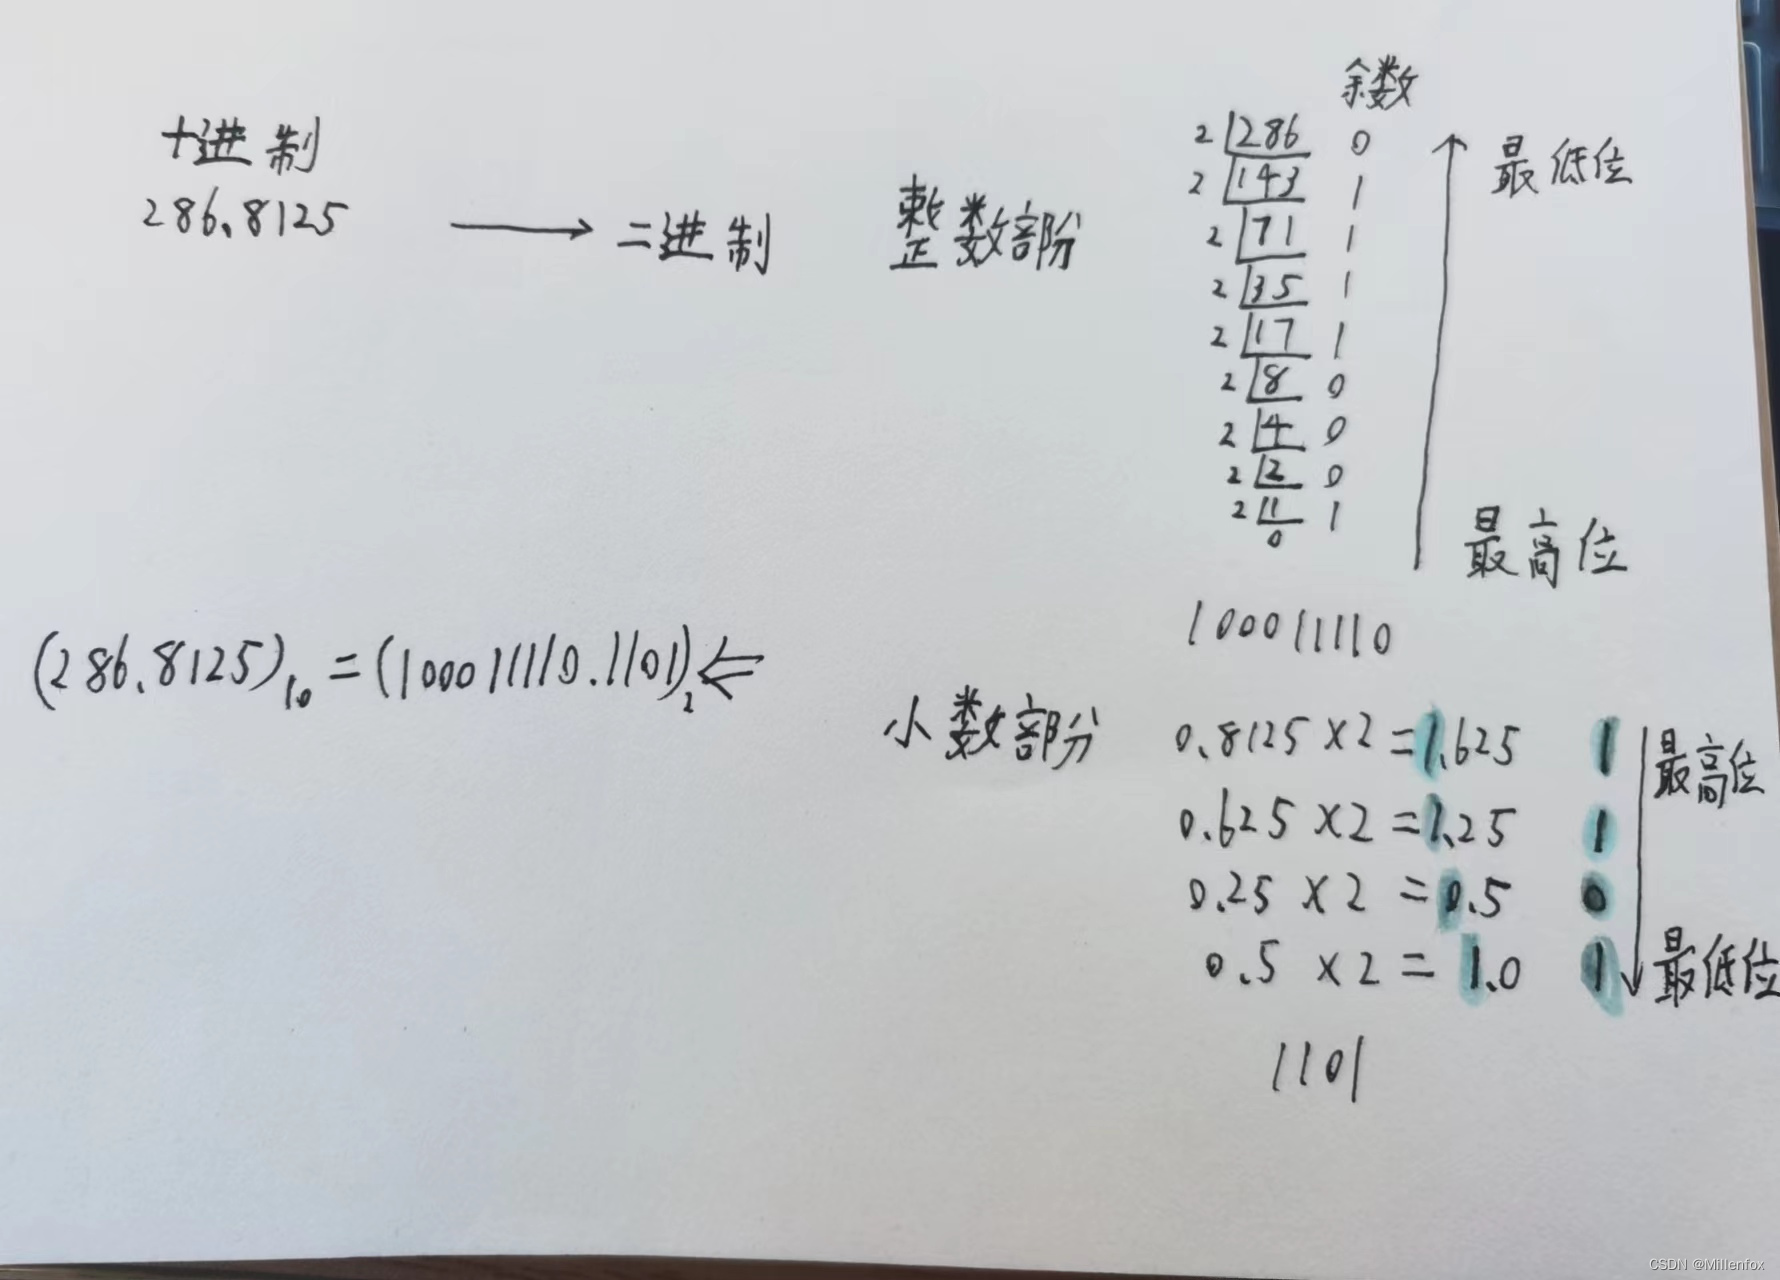 十进制
286.8125 → 二进制
整数部份
余数
2 286 0 最低位
2 143 1
2 71 1
2 35 1
2 17 1
2 8 0
2 4 0
2 2 0
2 1 1
0 最高位
100011110
(286.8125)10 = (100011110.1101)2 ⇐
小数部分
0.8125 × 2 = 1.625 1 最高位
0.625 × 2 = 1.25 1
0.25 × 2 = 0.5 0
0.5 × 2 = 1.0 1 最低位
1101
CSDN @Millenfox